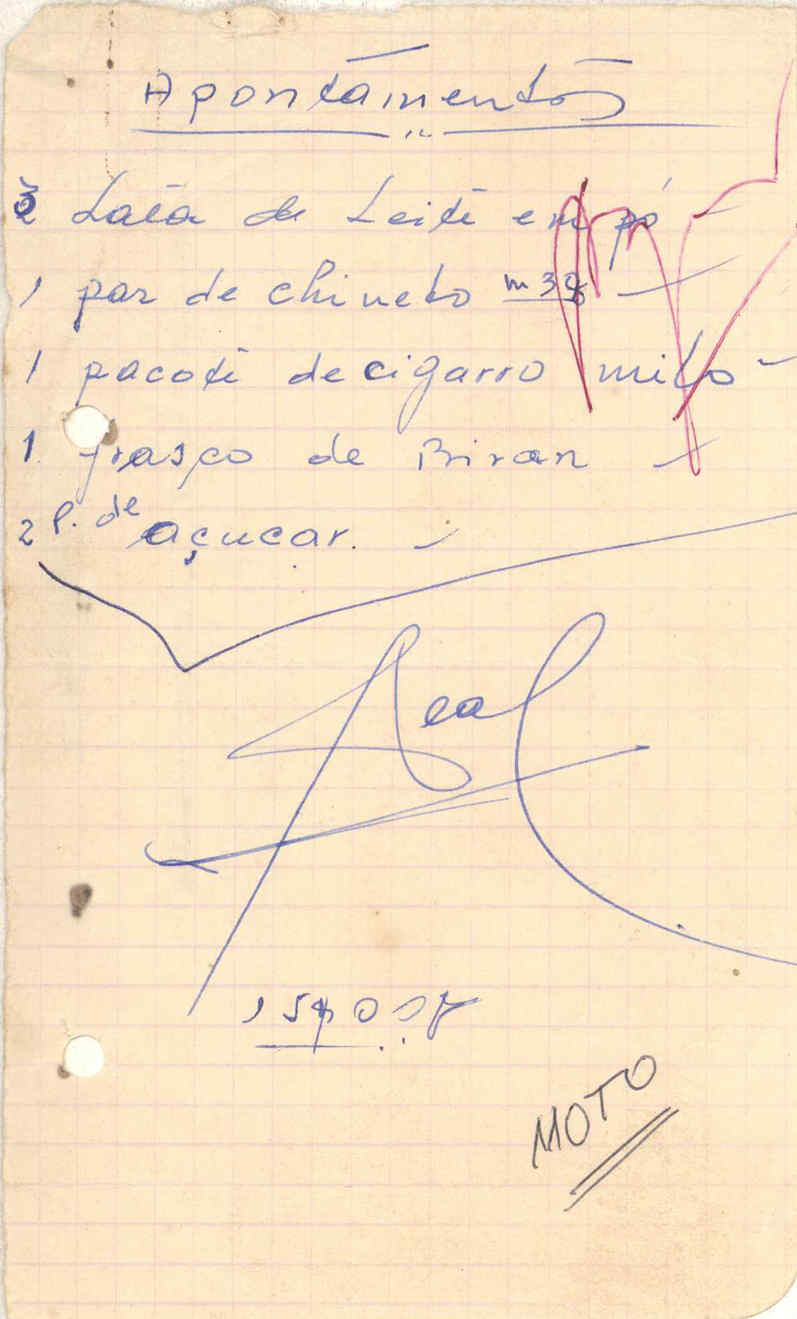 Apontamentos
3 Lata de Leite em pó
1 par de chineto nº 38
1 pacote de cigarro
1 frasco de
2 P. de açucar.
Leal
MOTO